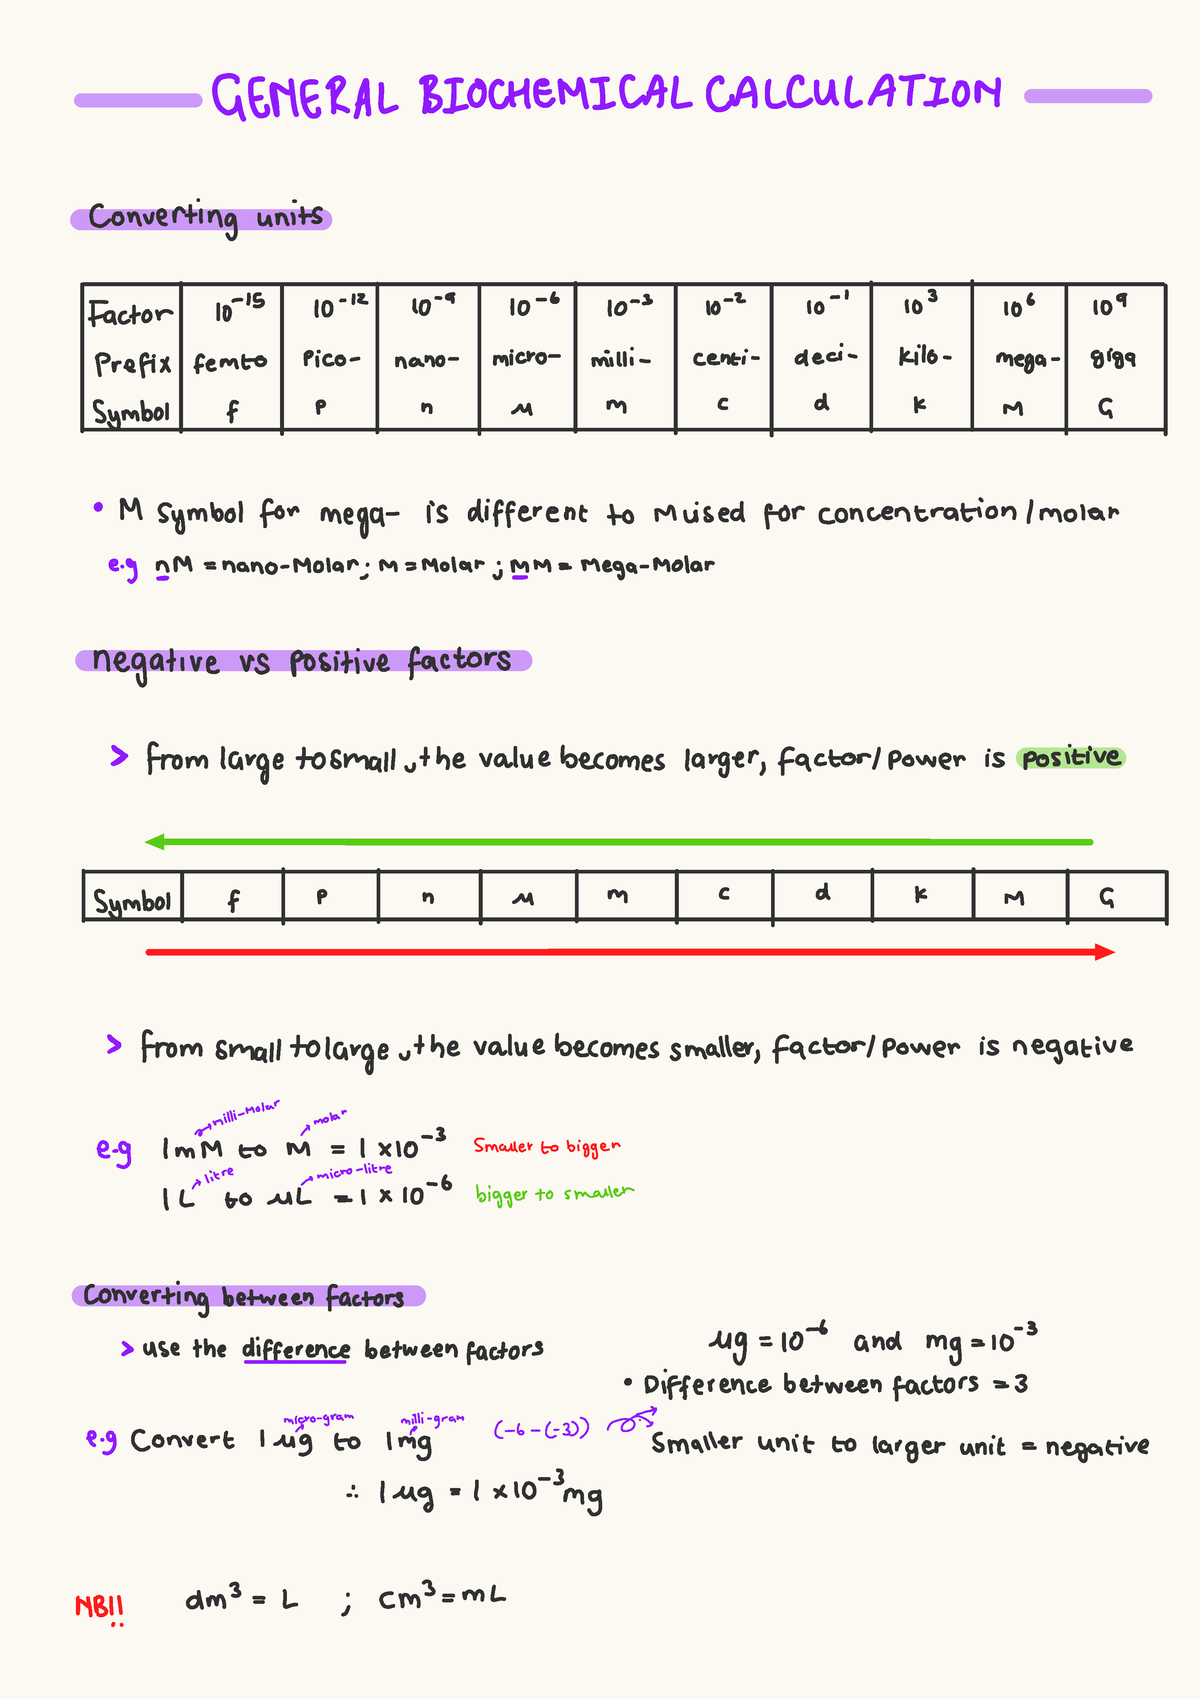 GENERAL BIOCHEMICAL CALCULATION
Converting units
Factor 10⁻¹⁵ 10⁻¹² 10⁻⁹ 10⁻⁶ 10⁻³ 10⁻² 10⁻¹ 10³ 10⁶ 10⁹
Prefix femto Pico- nano- micro- milli- centi- deci- kilo- mega- giga
Symbol f P n μ m c d k M G
• M Symbol for mega- is different to M used for concentration/molar
e.g nM = nano-Molar; M = Molar; MM = Mega-Molar
negative vs positive factors
> from large to small, the value becomes larger, factor/power is positive
Symbol f P n μ m c d k M G
> from small to large, the value becomes smaller, factor/power is negative
milli-Molar molar
e.g 1mM to M = 1 x 10⁻³ Smaller to bigger
litre micro-litre
1L to μL = 1 x 10⁻⁶ bigger to smaller
Converting between factors
> use the difference between factors
μg = 10⁻⁶ and mg = 10⁻³
• Difference between factors = 3
micro-gram milli-gram
e.g Convert 1μg to 1mg (-6-(-3))
Smaller unit to larger unit = negative
∴ 1μg = 1 x 10⁻³mg
NB!! dm³ = L ; cm³ = mL